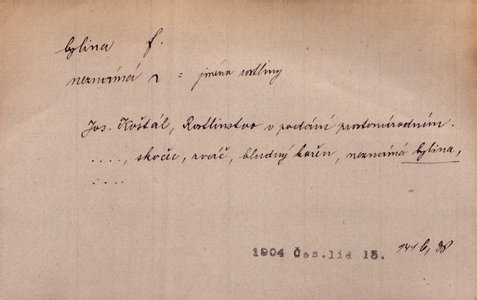 bylina f.
neznámá ~ = jméno rostliny
Jos. Košťál, Rostlinstvo v podání prostonárodním.
...., skočec, rváč, bludný kořen, neznámá bylina,
....
1904 Čes. lid 13. 141 b, 38